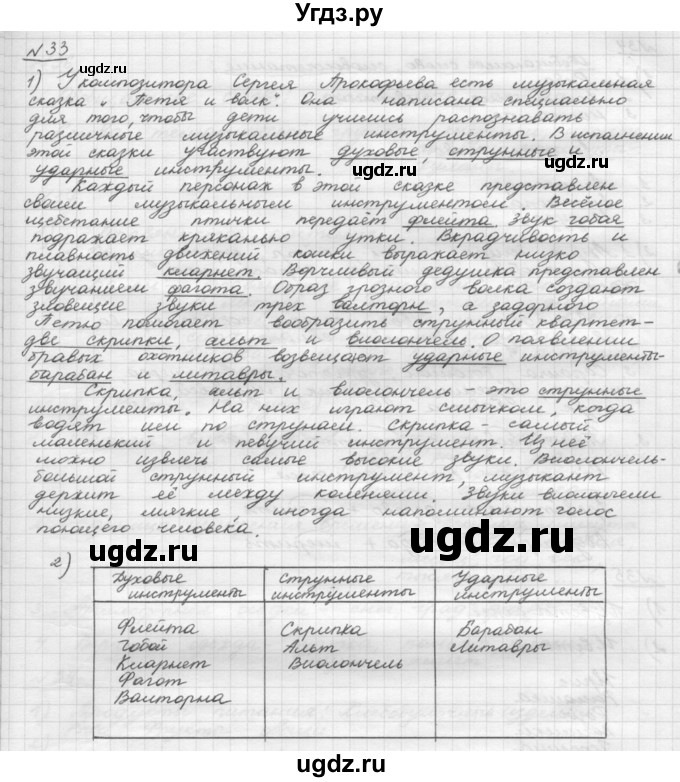 Угдз.ру
№33
1) У композитора Сергея Прокофьева есть музыкальная
сказка „Петя и волк“. Она написана специально
для того, чтобы дети учились распознавать
различные музыкальные инструменты. В исполнении
этой сказки участвуют духовые, струнные и
ударные инструменты.
Каждый персонаж в этой сказке представлен
своим музыкальным инструментом. Весёлое
щебетание птички передаёт флейта. Звук гобоя
подражает кряканью утки. Вкрадчивость и
плавность движений кошки выражает низко
звучащий кларнет. Ворчливый дедушка представлен
звучанием фагота. Образ грозного волка создают
зловещие звуки трех валторн, а задорного
Петю помогает вообразить струнный квартет-
две скрипки, альт и виолончель. О появлении
бравых охотников возвещают ударные инструменты-
барабан и литавры.
Скрипка, альт и виолончель - это струнные
инструменты. На них играют смычком, когда
водят им по струнам. Скрипка - самый
маленький и певучий инструмент. Из неё
можно извлечь самые высокие звуки. Виолончель-
большой струнный инструмент, музыкант
держит её между коленями. Звуки виолончели
низкие, мягкие, иногда напоминают голос
поющего человека.
2)
Духовые инструменты
Струнные инструменты
Ударные инструменты
Флейта Скрипка Барабан
Гобой Альт Литавры
Кларнет Виолончель
Фагот
Валторна
ugdz.ru
ugdz.ru
ugdz.ru
ugdz.ru
ugdz.ru
ugdz.ru
ugdz.ru
ugdz.ru
ugdz.ru
ugdz.ru
ugdz.ru
ugdz.ru
ugdz.ru